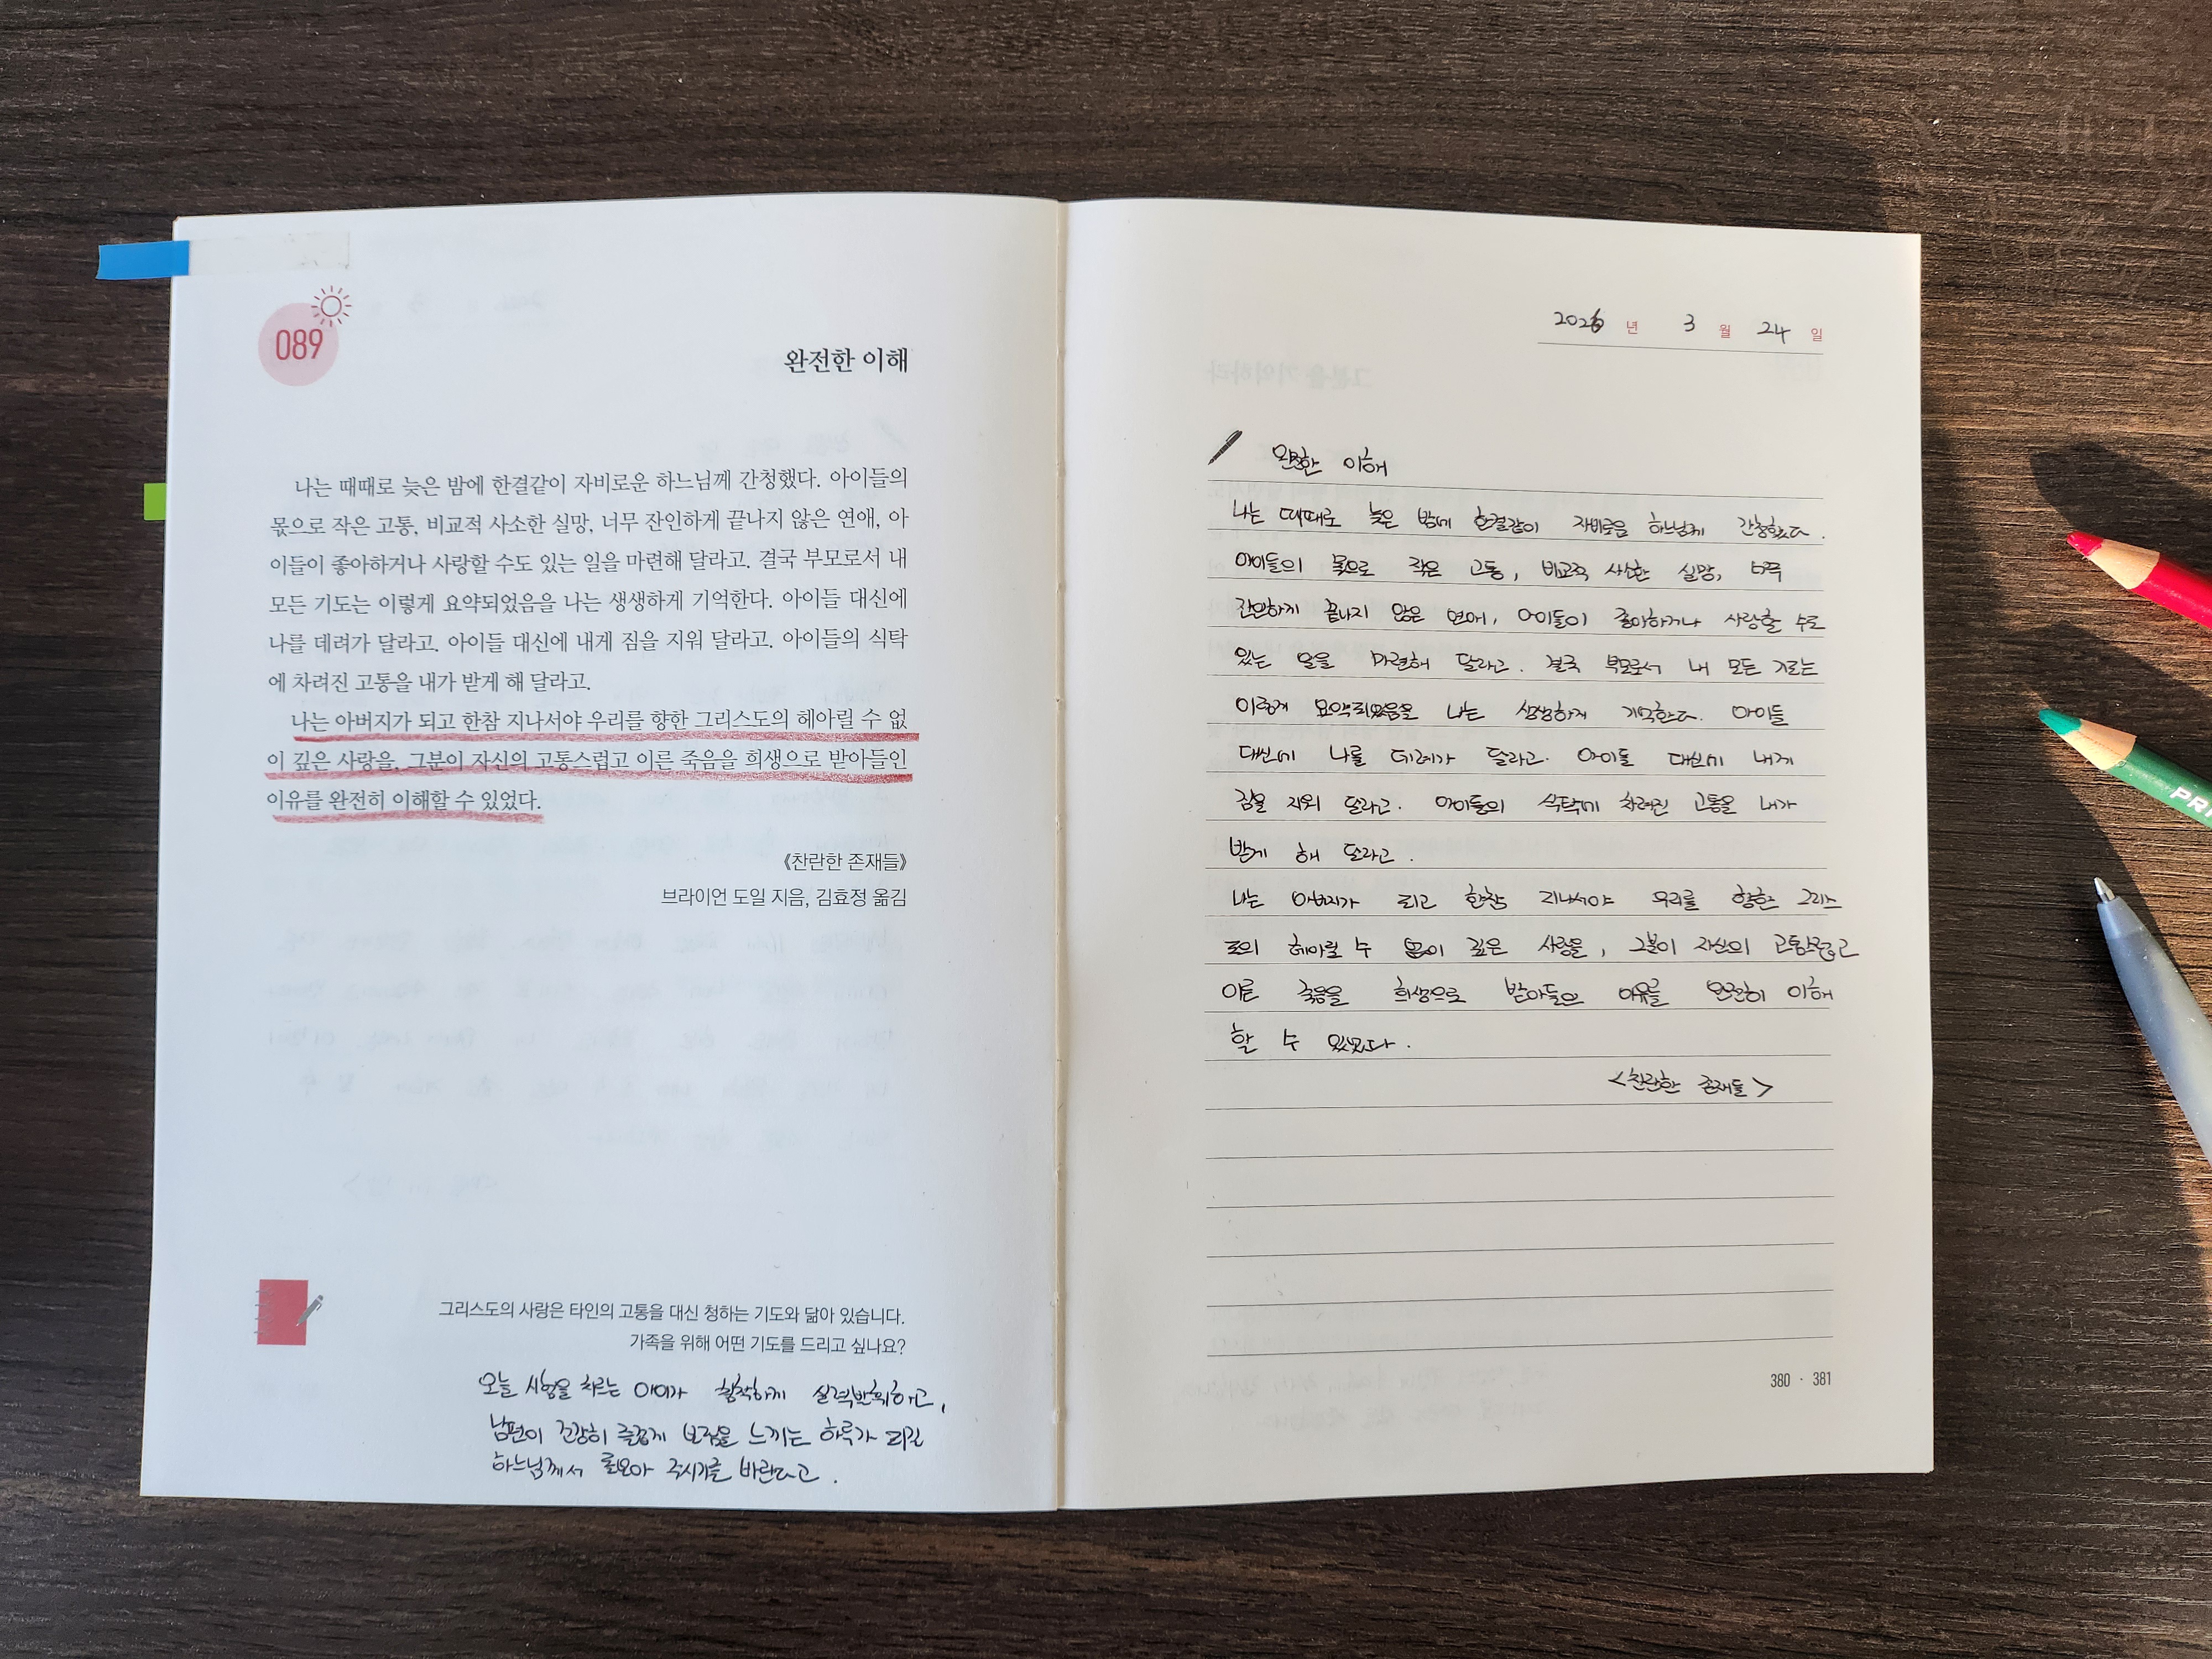 089
완전한 이해
나는 때때로 늦은 밤에 한결같이 자비로운 하느님께 간청했다. 아이들의
몫으로 작은 고통, 비교적 사소한 실망, 너무 잔인하게 끝나지 않은 연애, 아
이들이 좋아하거나 사랑할 수도 있는 일을 마련해 달라고. 결국 부모로서 내
모든 기도는 이렇게 요약되었음을 나는 생생하게 기억한다. 아이들 대신에
나를 데려가 달라고. 아이들 대신에 내게 짐을 지워 달라고. 아이들의 식탁
에 차려진 고통을 내가 받게 해 달라고.
나는 아버지가 되고 한참 지나서야 우리를 향한 그리스도의 헤아릴 수 없
이 깊은 사랑을, 그분이 자신의 고통스럽고 이른 죽음을 희생으로 받아들인
이유를 완전히 이해할 수 있었다.
《찬란한 존재들》
브라이언 도일 지음, 김효정 옮김
그리스도의 사랑은 타인의 고통을 대신 청하는 기도와 닮아 있습니다.
가족을 위해 어떤 기도를 드리고 싶나요?
오늘 시험을 치르는 아이가 침착하게 실력발휘하고,
남편이 건강히 즐겁게 보람을 느끼는 하루가 되길
하느님께서 돌보아 주시기를 바란다고.
2026 년 3 월 24 일
완전한 이해
나는 때때로 늦은 밤에 한결같이 자비로운 하느님께 간청했다.
아이들의 몫으로 작은 고통, 비교적 사소한 실망, 너무
잔인하게 끝나지 않은 연애, 아이들이 좋아하거나 사랑할 수도
있는 일을 마련해 달라고. 결국 부모로서 내 모든 기도는
이렇게 요약되었음을 나는 생생하게 기억한다. 아이들
대신에 나를 데려가 달라고. 아이들 대신에 내게
짐을 지워 달라고. 아이들의 식탁에 차려진 고통을 내가
받게 해 달라고.
나는 아버지가 되고 한참 지나서야 우리를 향한 그리스
도의 헤아릴 수 없이 깊은 사랑을, 그분이 자신의 고통스럽고
이른 죽음을 희생으로 받아들인 이유를 완전히 이해
할 수 있었다.
<찬란한 존재들>
380 · 381